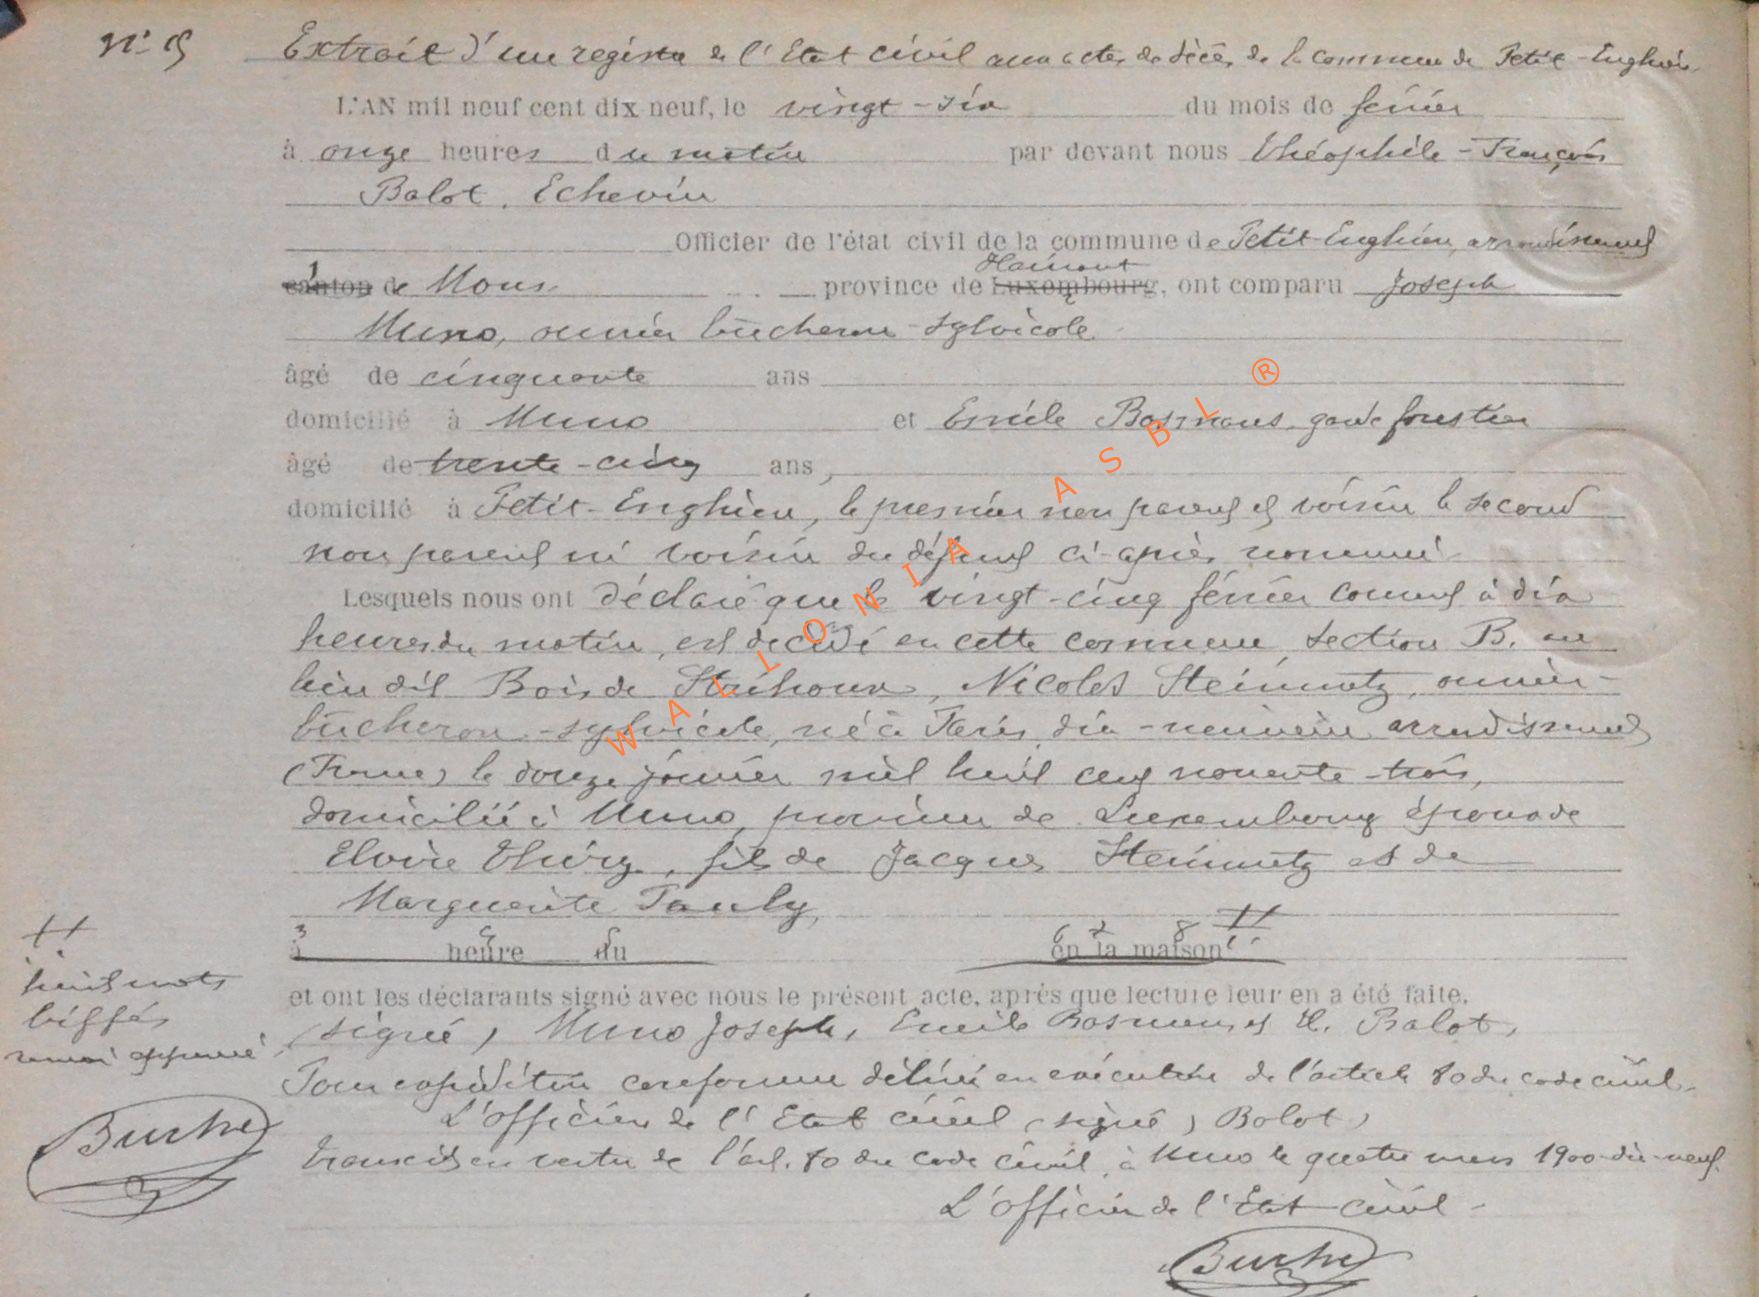 N° 15 Extrait d'un registre de l'Etat civil aux actes de décès de la commune de Petit-Enghien
L'AN mil neuf cent dix neuf, le vingt-six du mois de février
à onze heures du matin par devant nous Théophile-François
Balot, Echevin
Officier de l'état civil de la commune de Petit-Enghien, arrondissement
1
canton de Mons Hainaut
province de Luxembourg, ont comparu Joseph
Muno, ouvrier bûcheron-sylvicole
âgé de cinquante ans
domicilié à Muno et Emile Bosmans garde forestier
âgé de trente-cinq ans,
domicilié à Petit-Enghien, le premier non parent et voisin le second
non parent ni voisin du défunt ci-après nommé
Lesquels nous ont déclaré que le vingt-cinq février courant à dix
heures du matin, est décédé en cette commune, section B. au
lieu dit Bois de Strihoux, Nicolas Steinmetz, ouvrier
bûcheron-sylvicole, né à Paris, dix-neuvième arrondissement
(France) le douze janvier mil huit cent nonante-trois,
domicilié à Muno, province de Luxembourg époux de
Elvire Thiry, fils de Jacques Steinmetz et de
Marguerite Pauly,
3 4 5 6 7 8 H
à heure du en la maison
et ont les déclarants signé avec nous le présent acte, après que lecture leur en a été faite.
(signé) Muno Joseph, Emile Bosmans et Th. Balot,
H
huit mots
biffés
renvoi approuvé
Pour expédition conforme délivrée en exécution de l'article 80 du code civil.
L'officier de l'Etat civil (signé) Balot)
Transcrit en vertu de l'art. 80 du code civil, à Muno le quatre mars 1900-dix-neuf.
L'officier de l'Etat civil -
WALLONIA ASBL ®